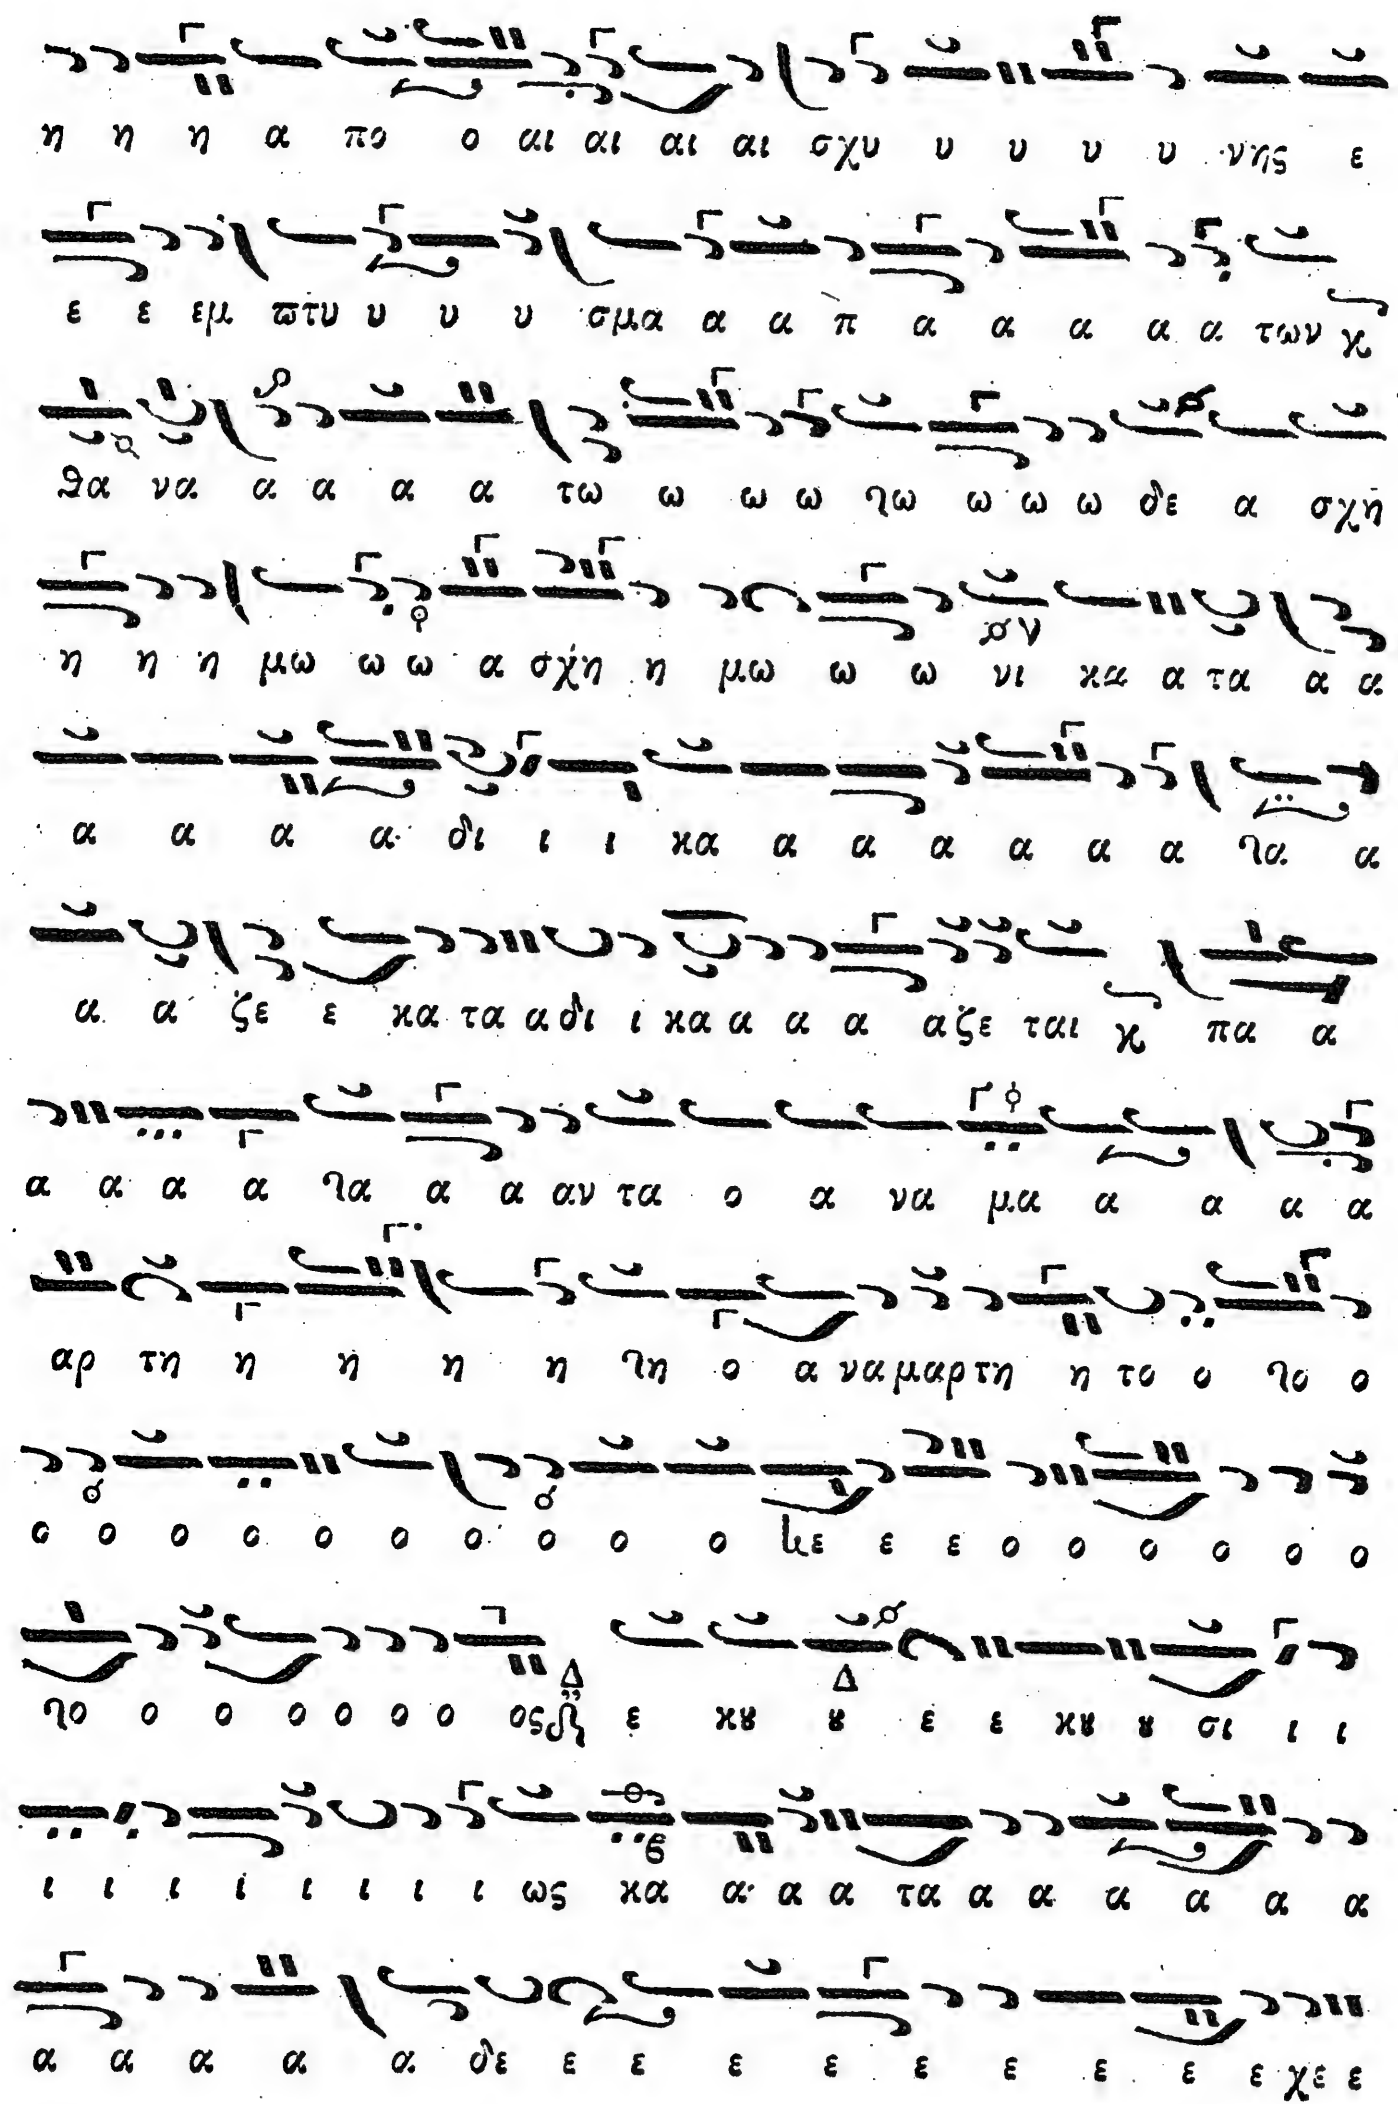 η η η α πο ο αι αι αι αι σχυ υ υ υ υ νης ε
ε ε εμ ϖτυ υ υ υ σμα α α π α α α α α των ϗ
θα να α α α α τω ω ω ω γω ω ω ω δε α σχη
η η η μω ω ω α σχη η μω ω ω νι κα α τα α α
α α α α δι ι ι κα α α α α α α γα α
α α ζε ε κα τα α δι ι κα α α α α ζε ται ϗ πα α
α α α α γα α α αν τα ο α να μα α α α α
αρ τη η η η η γη ο α να μαρ τη η το ο γο ο
ο ο ο ο ο ο ο ο ο ο ε ε ε ο ο ο ο ο ο
γο ο ο ο ο ο ο ος Δ ε κȣ ȣ Δ ε ε κȣ ȣ σι ι ι
ι ι ι ι ι ι ι ι ως κα α α α τα α α α α α α
α α α α α δε ε ε ε ε ε ε ε ε ε χε ε